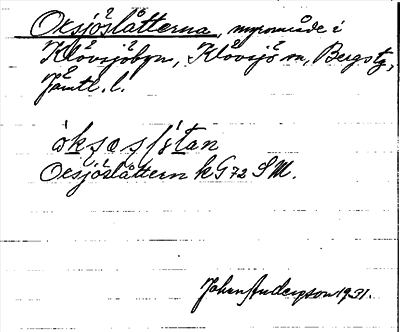 Oxsjöslåtterna, myrområde i
Klövsjöbyn, Klövsjö sn, Bergs tg,
Jämtl. l.
Oxsjöslåttern kG72 SM.
Johan Anderzson 1931.